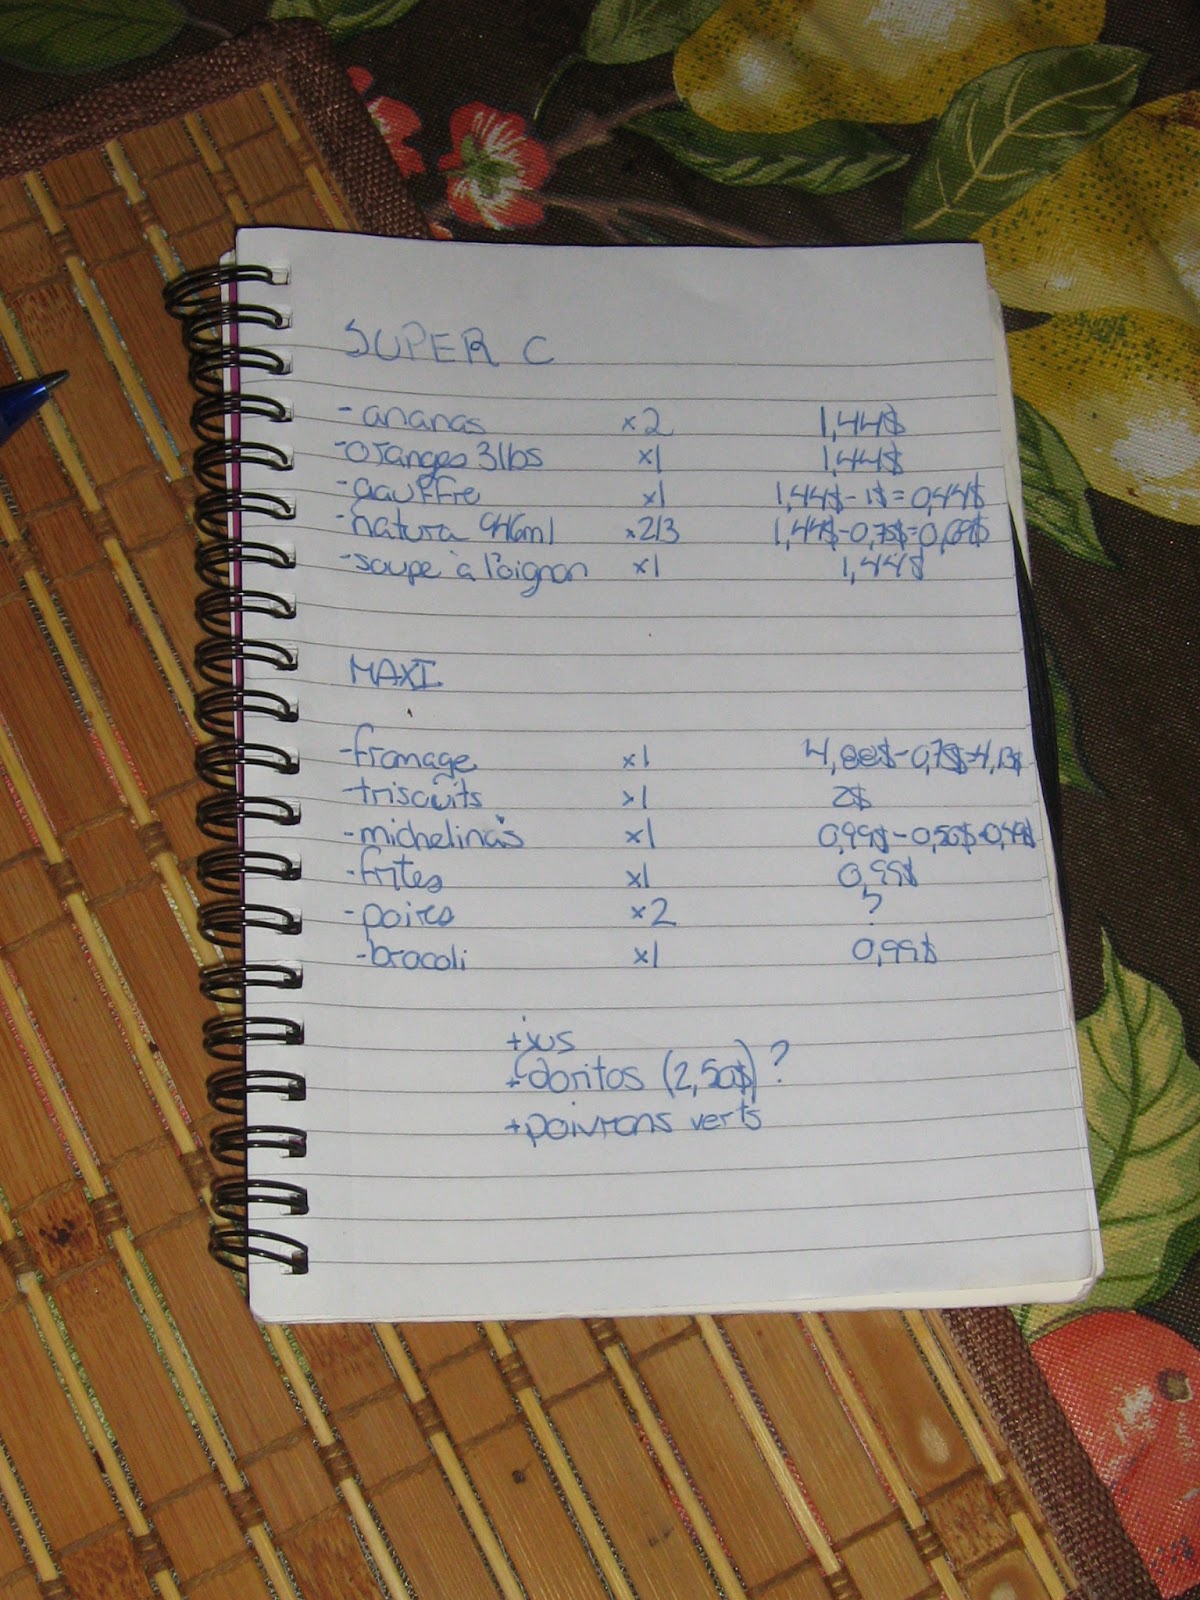 SUPER C
-ananas x2 1,44$
-oranges 3lbs x1 1,44$
-gauffre x1 1,44$-1$=0,44$
-natura 946ml x2/3 1,44$-0,75$=0,69$
-soupe à l'oignon x1 1,44$
MAXI
-fromage x1 4,88$-0,75$=4,13$
-triscuits x1 2$
-michelina's x1 0,99$-0,50$=0,49$
-frites x1 0,99$
-poires x2 ?
-brocoli x1 0,99$
+jus
+doritos (2,50$)?
+poivrons verts